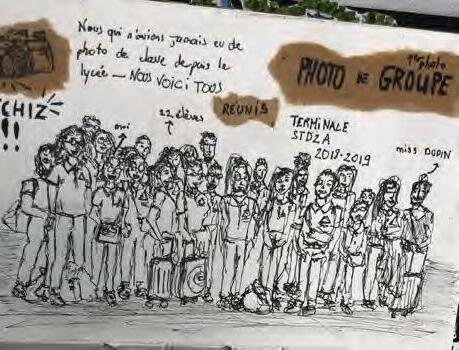 Nous qui n'avions jamais eu de
photo de classe depuis le
lycée — NOUS VOICI TOUS
RÉUNIS
1ère photo
PHOTO DE GROUPE
CHIZ
!!
moi
22 élèves
TERMINALE
STD2A
2018-2019
miss DUPIN